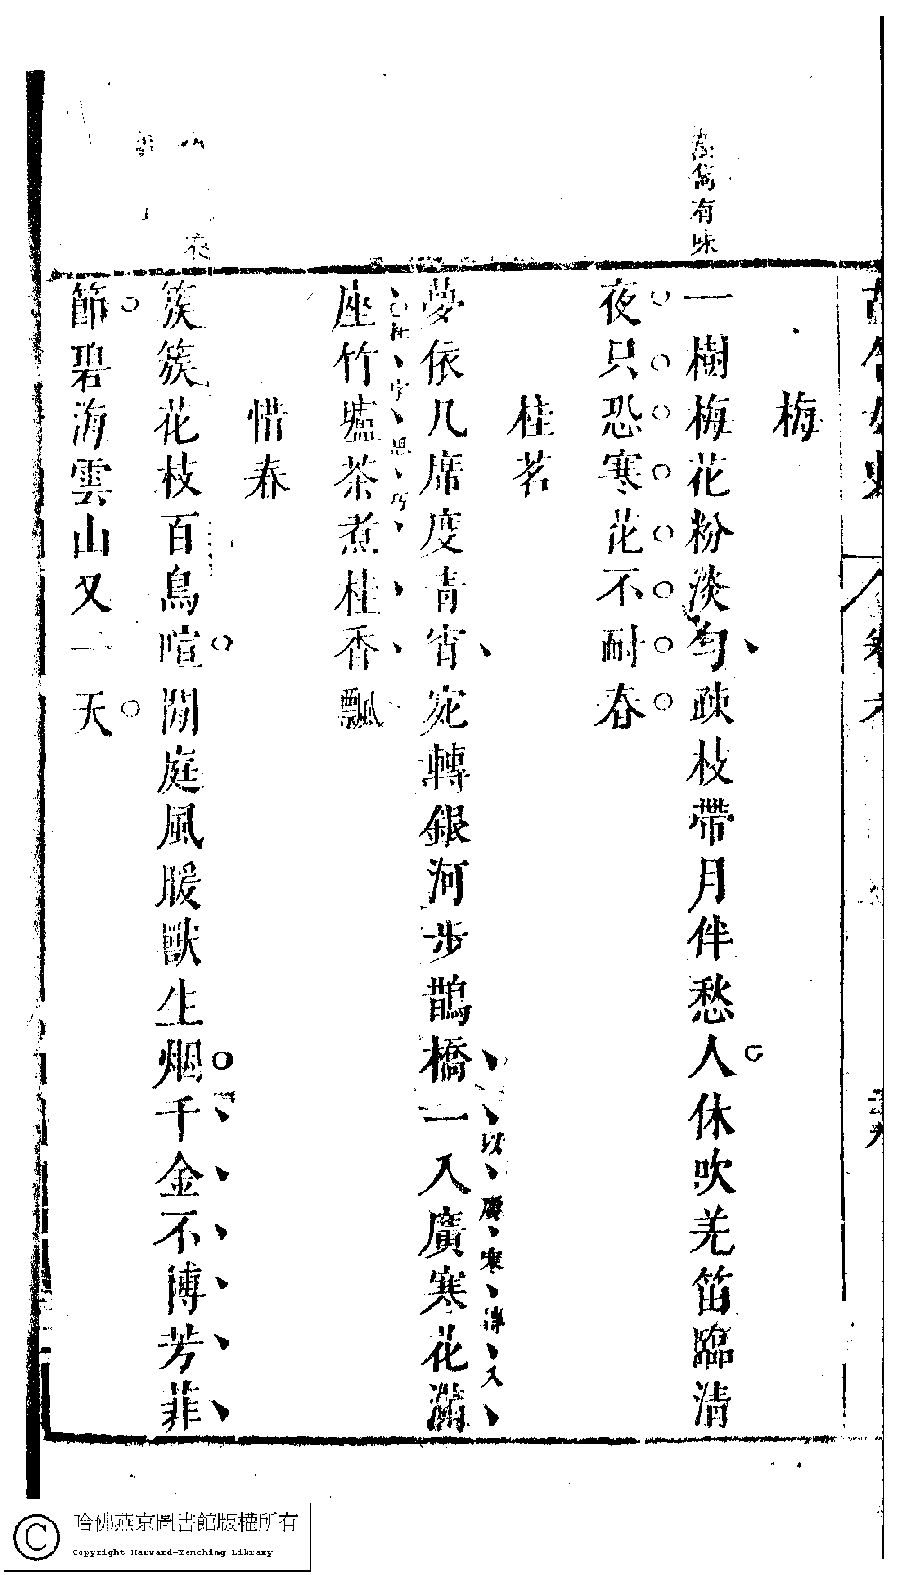 梅
一樹梅花粉淡勻疎枝帶月伴愁人休吹羌笛臨清
夜只恐寒花不耐春
有味
桂茗
夢依几席度青宵宛轉銀河步鵲橋一入廣寒花滿
以廣寒淨入
座竹爐茶煮桂香飄
惜春
簇簇花枝百鳥喧閒庭風暖獸生烟千金不博芳菲
節碧海雲山又一天
哈佛燕京圖書館版權所有
Copyright Harvard-Yenching Library